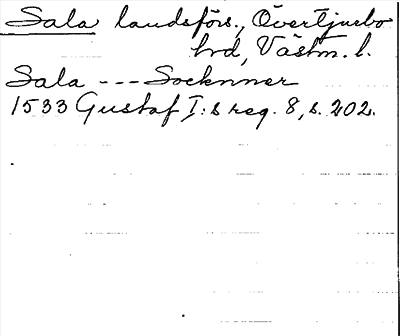 Sala landsförs., Övertjurbo
hrd, Västm. l.
Sala --- Socknner
1533 Gustaf I:s reg. 8, s. 202.